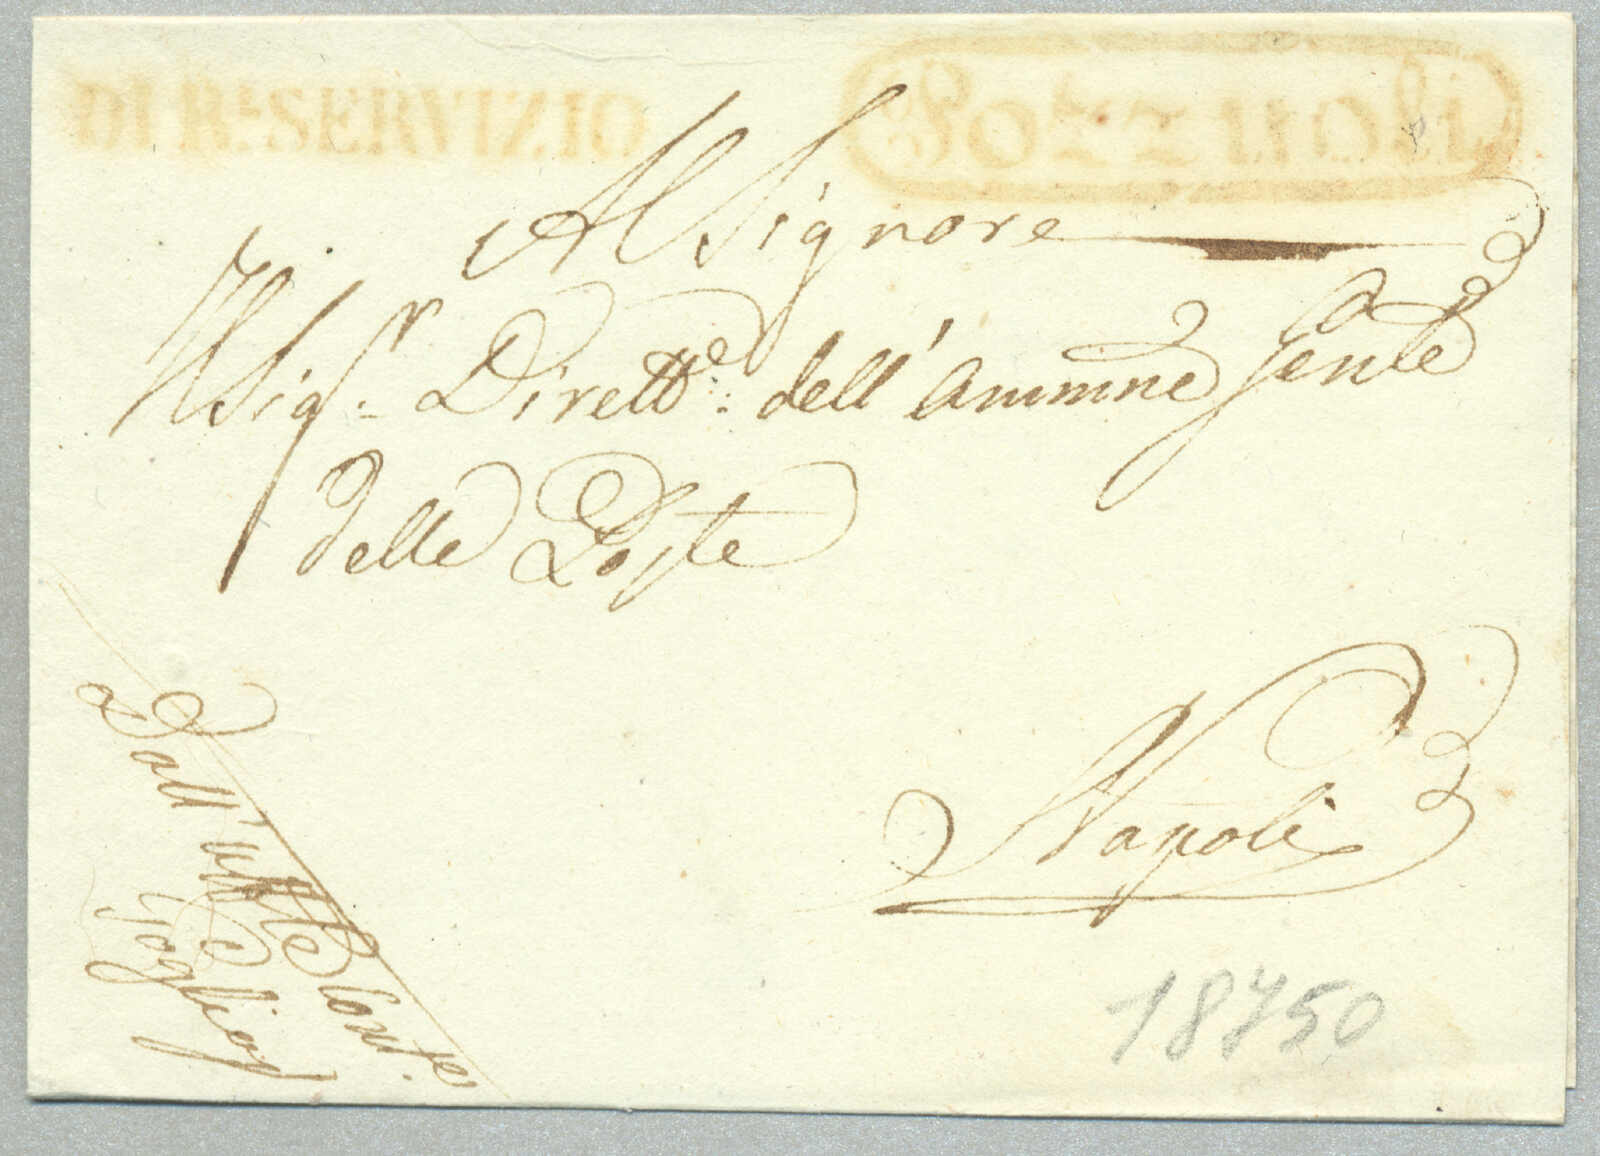 DI Rl. SERVIZIO
Pozzuoli
Al Signore
Il Sigr. Dirette. dell'Ammne Genle
delle Poste
Napoli
Dall'
Goglia
18750